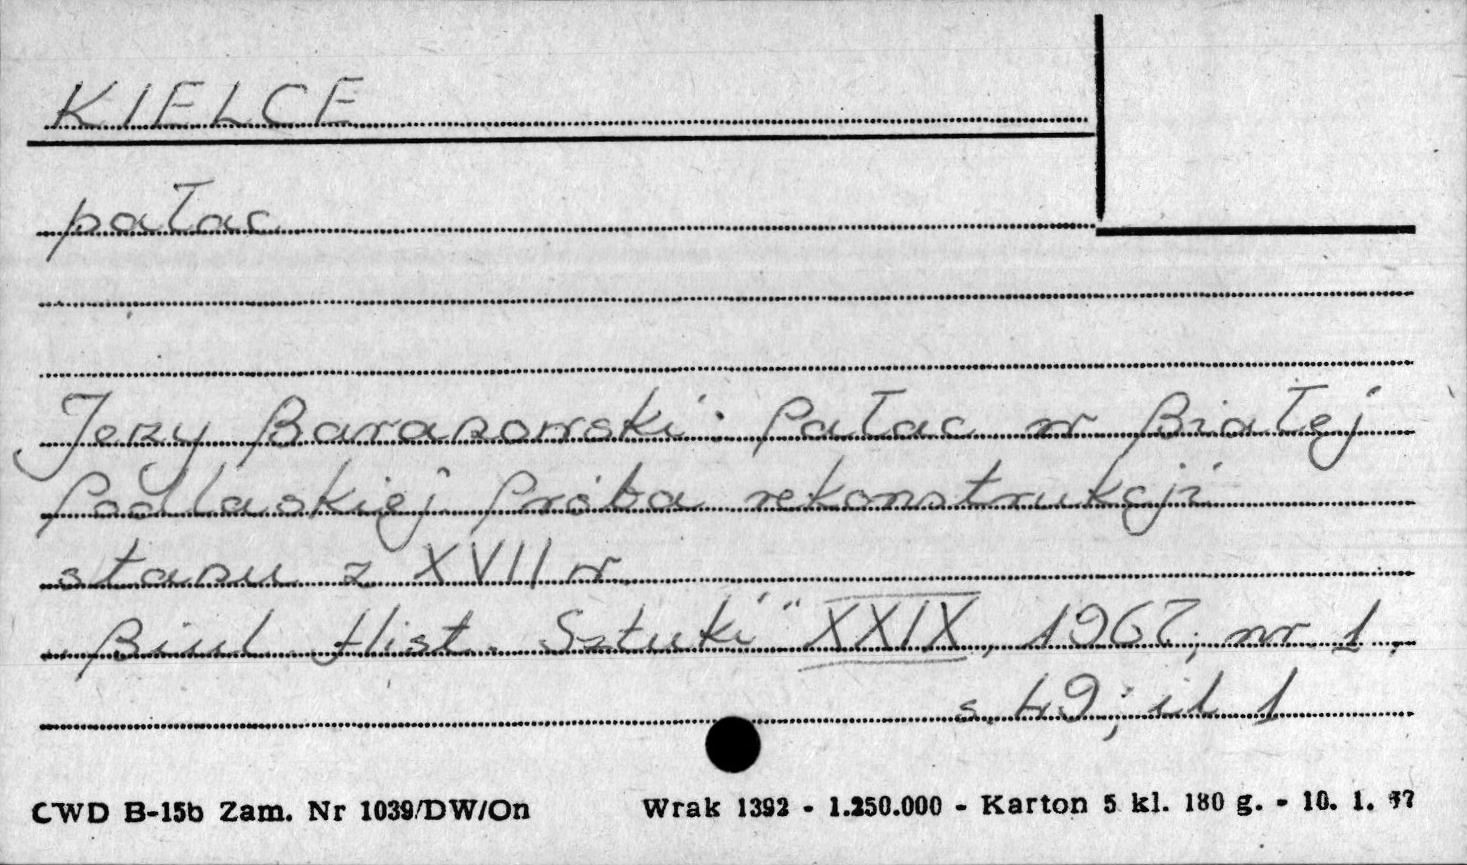 KIELCE
pałac
Jerzy Baranowski: Pałac w Białej
Podlaskiej. Próba rekonstrukcji
stanu z XVII w.
"Biul. Hist. Sztuki" XXIX, 1967, nr 1,
s. 49; il 1
CWD B-15b Zam. Nr 1039/DW/On Wrak 1392 - 1.250.000 - Karton 5 kl. 180 g. - 10. 1. 67